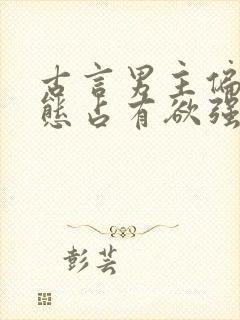 古言男主偏
态占有欲强
彭芸